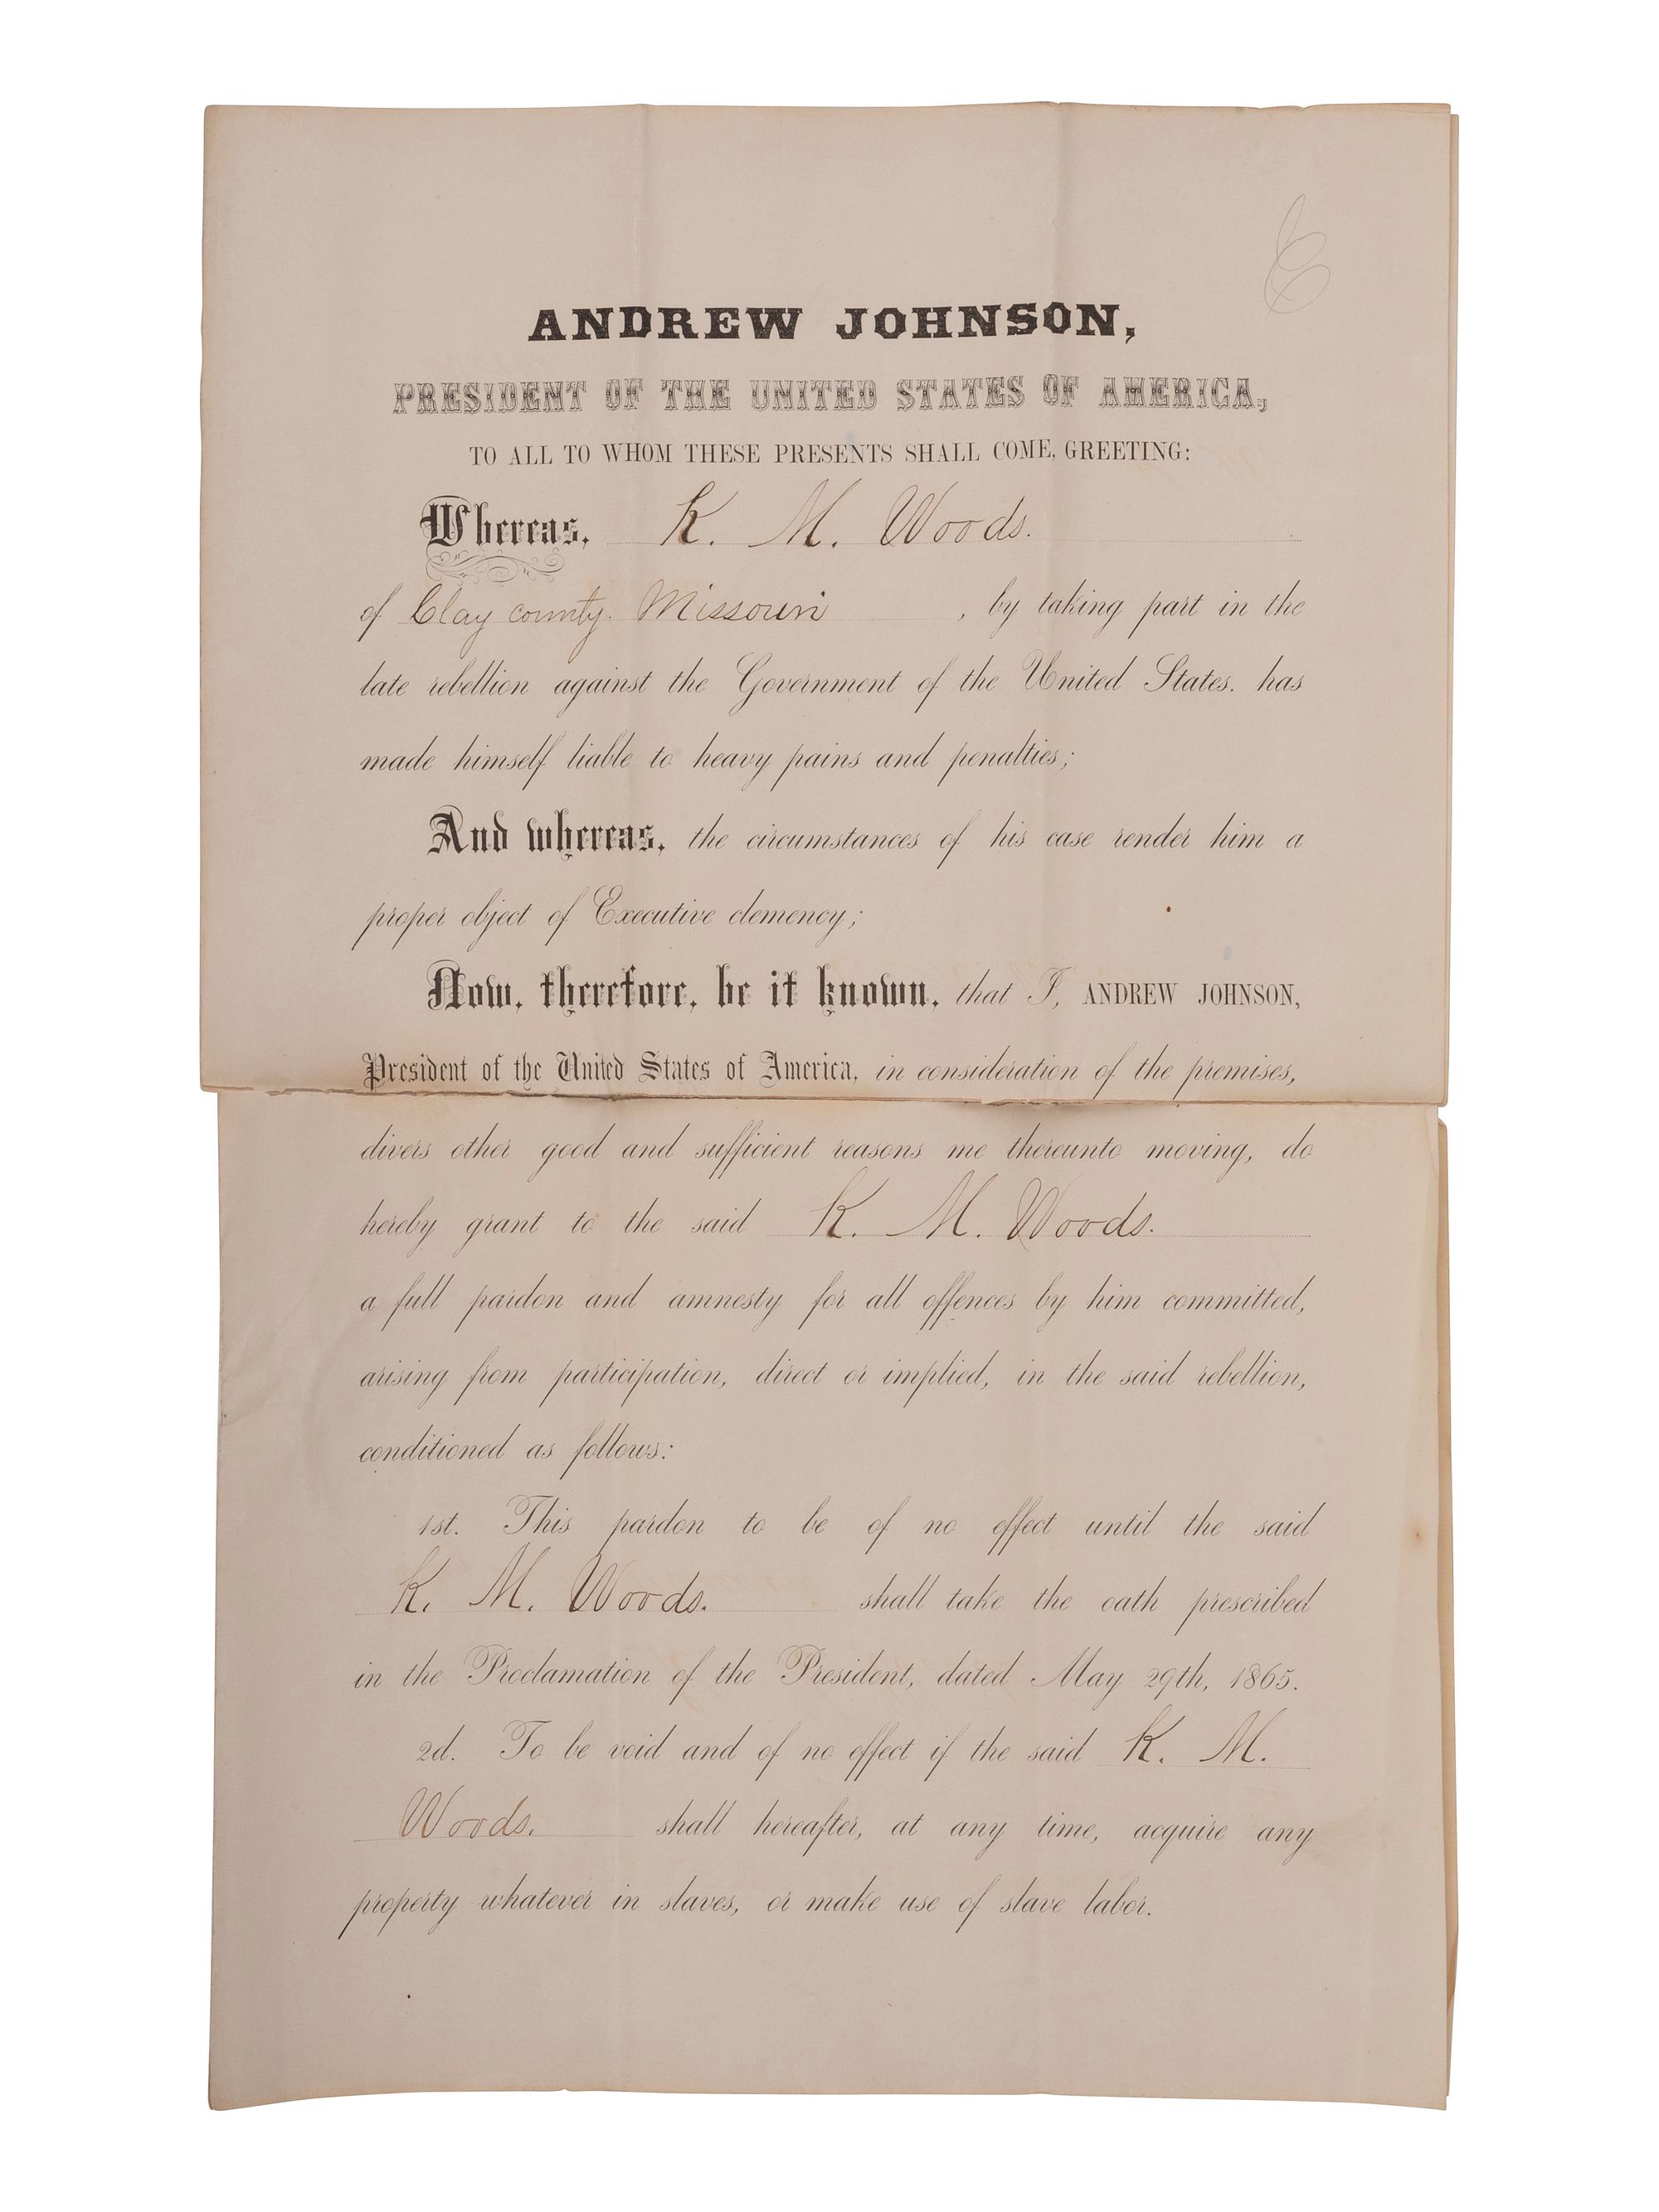 ANDREW JOHNSON,
PRESIDENT OF THE UNITED STATES OF AMERICA,
TO ALL TO WHOM THESE PRESENTS SHALL COME, GREETING:
Whereas, K. M. Woods.
of Clay county. Missouri , by taking part in the
late rebellion against the Government of the United States. has
made himself liable to heavy pains and penalties;
And whereas, the circumstances of his case render him a
proper object of Executive clemency;
Now, therefore, be it known, that I, ANDREW JOHNSON,
President of the United States of America, in consideration of the premises,
divers other good and sufficient reasons me thereunto moving, do
hereby grant to the said K. M. Woods.
a full pardon and amnesty for all offences by him committed,
arising from participation, direct or implied, in the said rebellion,
conditioned as follows:
1st. This pardon to be of no effect until the said
K. M. Woods. shall take the oath prescribed
in the Proclamation of the President, dated May 29th, 1865.
2d. To be void and of no effect if the said K. M.
Woods. shall hereafter, at any time, acquire any
property whatever in slaves, or make use of slave labor.